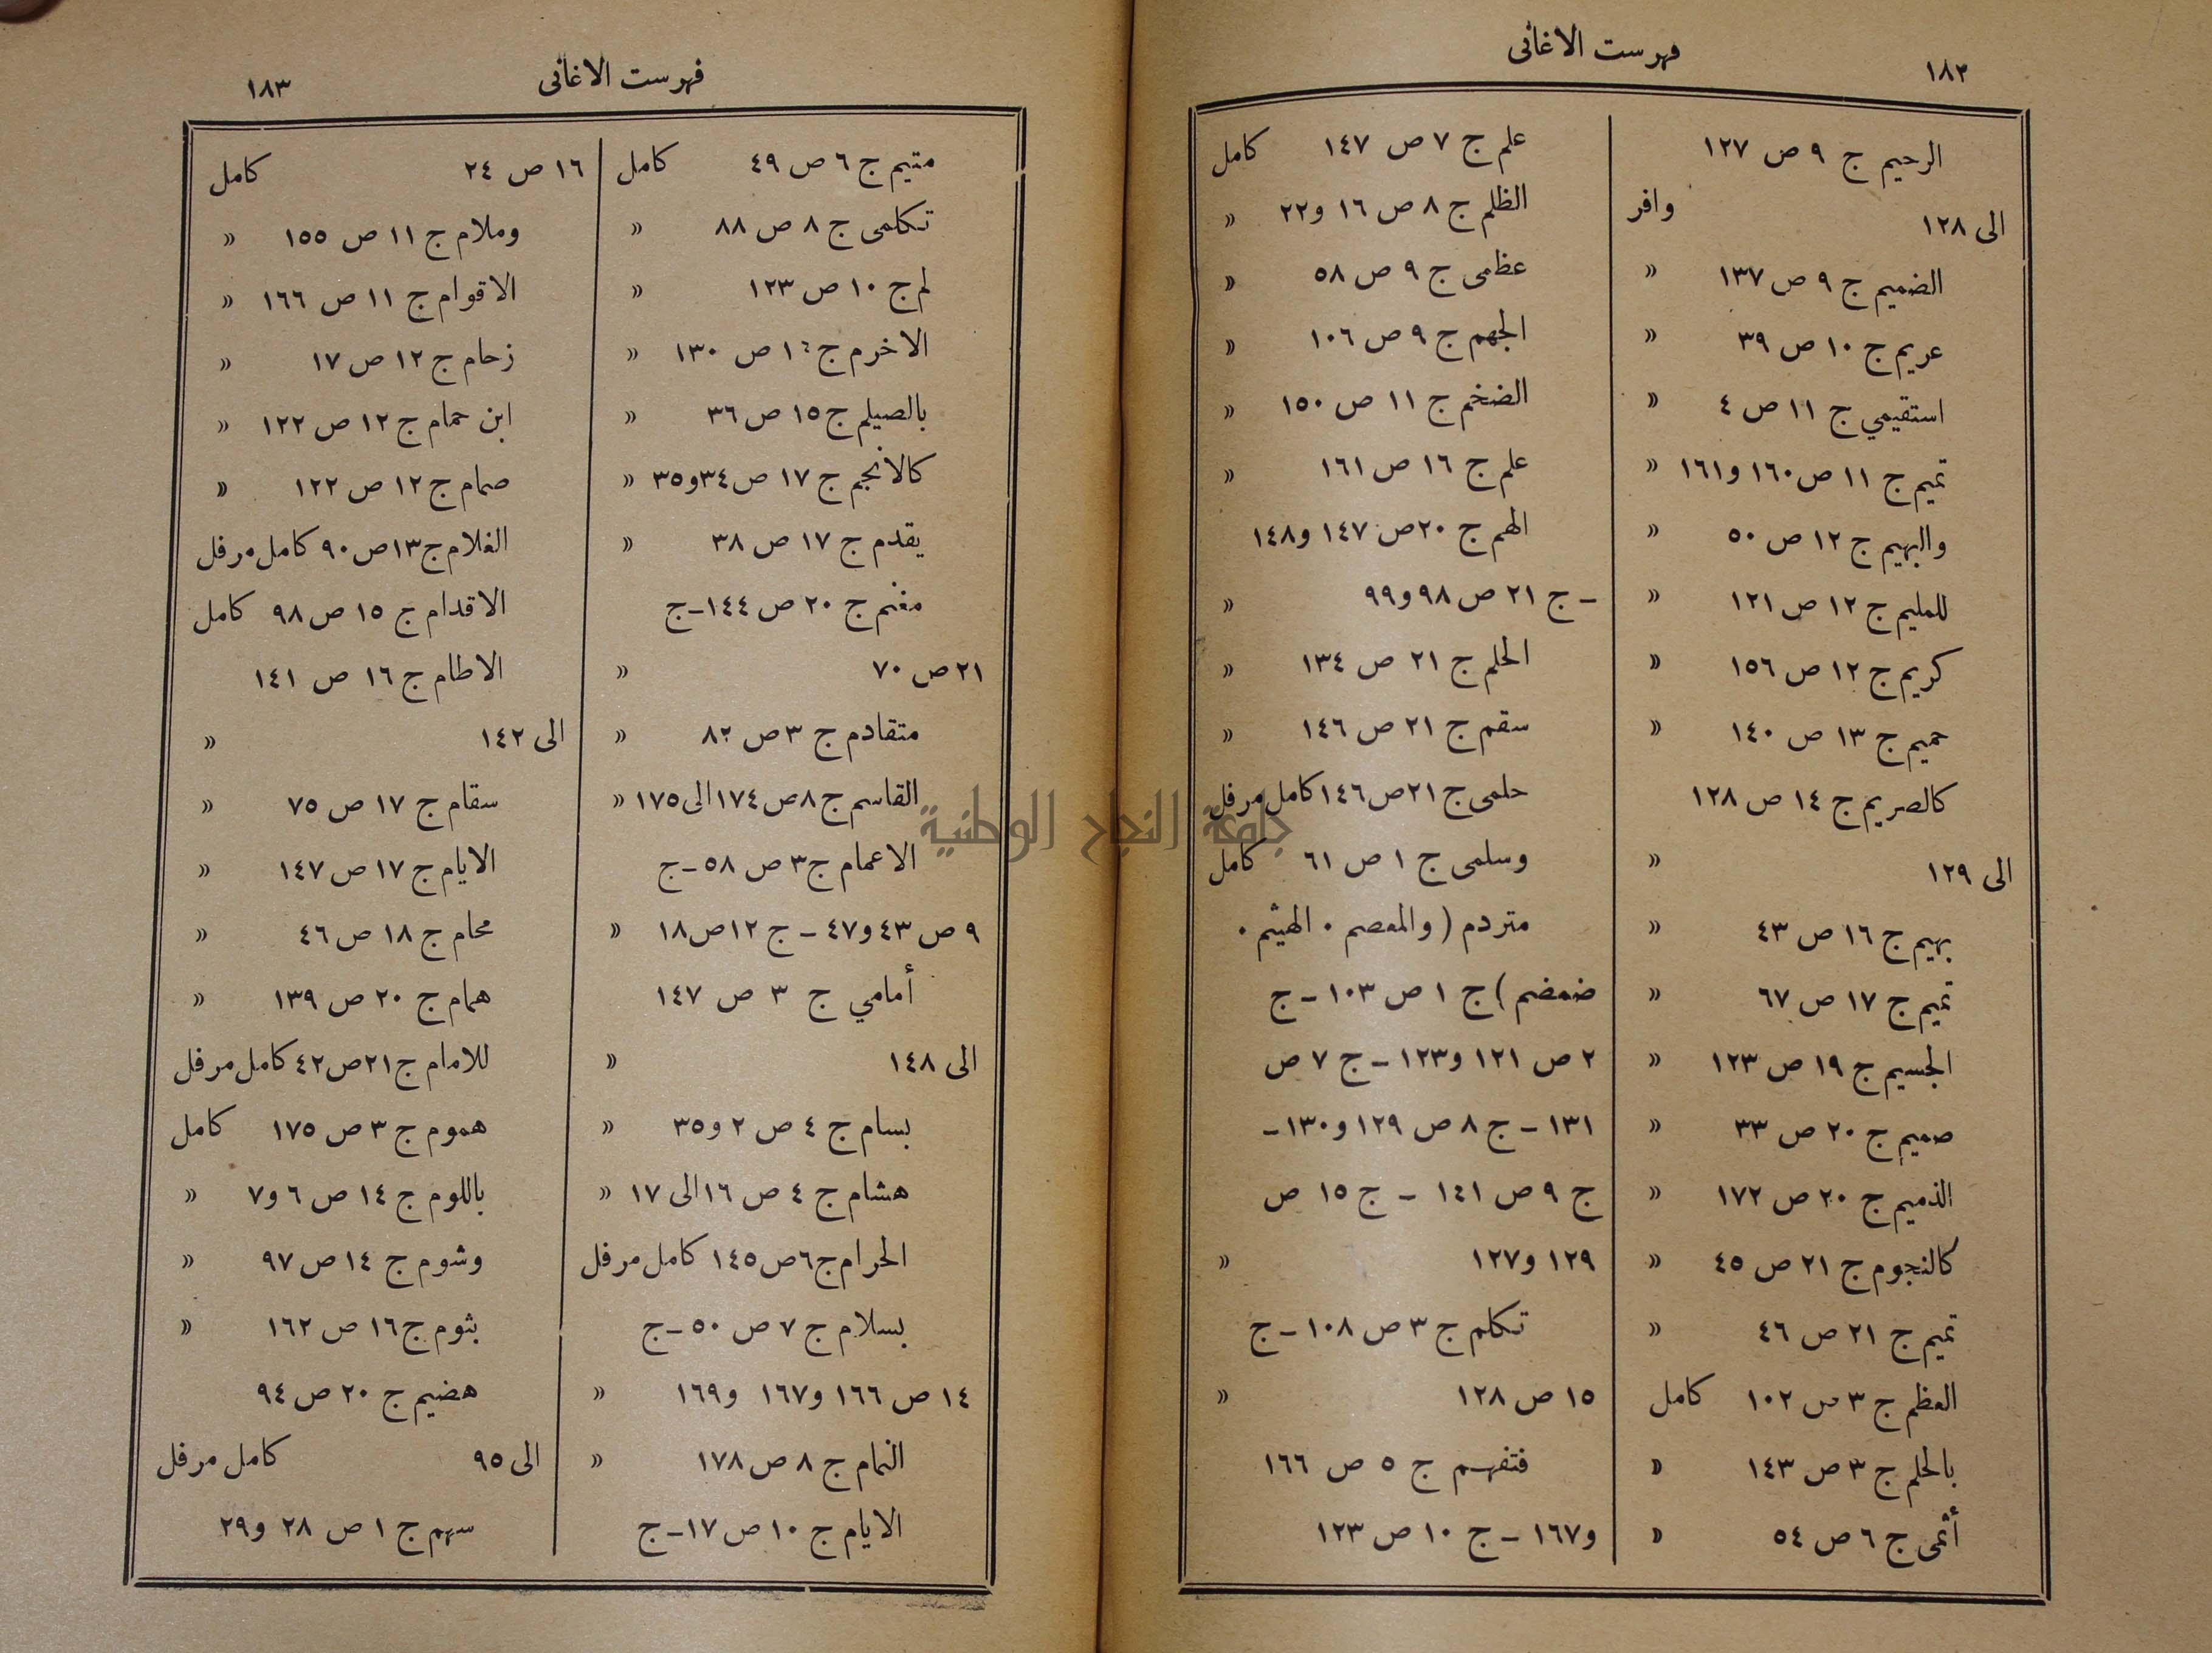 ١٨٢
فهرست الاغانى
الرحيم ج ٩ ص ١٢٧
الى ١٢٨ وافر
الضميم ج ٩ ص ١٣٧ »
عريم ج ١٠ ص ٣٩ »
استقيمي ج ١١ ص ٤ »
تميم ج ١١ ص ١٦٠ و١٦١ »
والبهيم ج ١٢ ص ٥٠ »
للمليم ج ١٢ ص ١٢١ »
كريم ج ١٢ ص ١٥٦ »
حميم ج ١٣ ص ١٤٠ »
كالصريم ج ١٤ ص ١٢٨
الى ١٢٩ »
بهيم ج ١٦ ص ٤٣ »
تميم ج ١٧ ص ٦٧ »
الجسيم ج ١٩ ص ١٢٣ »
صميم ج ٢٠ ص ٣٣ »
الذميم ج ٢٠ ص ١٧٢ »
كالنجوم ج ٢١ ص ٤٥ »
تميم ج ٢١ ص ٤٦ »
العظم ج ٣ ص ١٠٢ كامل
بالحلم ج ٣ ص ١٤٣ »
أثمى ج ٦ ص ٥٤ »
علم ج ٧ ص ١٤٧ كامل
الظلم ج ٨ ص ١٦ و٢٢ »
عظمى ج ٩ ص ٥٨ »
الجهم ج ٩ ص ١٠٦ »
الضخم ج ١١ ص ١٥٠ »
علم ج ١٦ ص ١٦١ »
الهم ج ٢٠ ص ١٤٧ و١٤٨
ـ ج ٢١ ص ٩٨ و٩٩ »
الحلم ج ٢١ ص ١٣٤ »
سقم ج ٢١ ص ١٤٦ »
حلمى ج ٢١ ص ١٤٦ كامل مرفل
وسلمى ج ١ ص ٦١ كامل
متردم ( والمعصم ٠ الهيثم ٠
ضمضم ) ج ١ ص ١٠٣ ـ ج
٢ ص ١٢١ و١٢٣ ـ ج ٧ ص
١٣١ ـ ج ٨ ص ١٢٩ و١٣٠ ـ
ج ٩ ص ١٤١ ـ ج ١٥ ص
١٢٩ و١٢٧ »
تكلم ج ٣ ص ١٠٨ ـ ج
١٥ ص ١٢٨ »
فتفهم ج ٥ ص ١٦٦
و١٦٧ ـ ج ١٠ ص ١٢٣
فهرست الاغانى
١٨٣
متيم ج ٦ ص ٤٩ كامل
تكلمى ج ٨ ص ٨٨ »
لم ج ١٠ ص ١٢٣ »
الاخرم ج ١٤ ص ١٣٠ »
بالصيلم ج ١٥ ص ٣٦ »
كالانجم ج ١٧ ص ٣٤ و٣٥ »
يقدم ج ١٧ ص ٣٨ »
مغنم ج ٢٠ ص ١٤٤ ـ ج
٢١ ص ٧٠ »
متقادم ج ٣ ص ٨٢ »
القاسم ج ٨ ص ١٧٤ الى ١٧٥ »
الاعمام ج ٣ ص ٥٨ ـ ج
٩ ص ٤٣ و٤٧ ـ ج ١٢ ص ١٨ »
أمامي ج ٣ ص ١٤٧
الى ١٤٨ »
بسام ج ٤ ص ٢ و٣٥ »
هشام ج ٤ ص ١٦ الى ١٧ »
الحرام ج ٦ ص ١٤٥ كامل مرفل
بسلام ج ٧ ص ٥٠ ـ ج
١٤ ص ١٦٦ و١٦٧ و١٦٩ »
النمام ج ٨ ص ١٧٨ »
الايام ج ١٠ ص ١٧ ـ ج
١٦ ص ٢٤ كامل
وملام ج ١١ ص ١٥٥ »
الاقوام ج ١١ ص ١٦٦ »
زحام ج ١٢ ص ١٧ »
ابن حمام ج ١٢ ص ١٢٢ »
صمام ج ١٢ ص ١٢٢ »
الغلام ج ١٣ ص ٩٠ كامل مرفل
الاقدام ج ١٥ ص ٩٨ كامل
الاطام ج ١٦ ص ١٤١
الى ١٤٢ »
سقام ج ١٧ ص ٧٥ »
الايام ج ١٧ ص ١٤٧ »
محام ج ١٨ ص ٤٦ »
همام ج ٢٠ ص ١٣٩ »
للامام ج ٢١ ص ٤٢ كامل مرفل
هموم ج ٣ ص ١٧٥ كامل
باللوم ج ١٤ ص ٦ و٧ »
وشوم ج ١٤ ص ٩٧ »
بثوم ج ١٦ ص ١٦٢ »
هضيم ج ٢٠ ص ٩٤
الى ٩٥ كامل مرفل
سهم ج ١ ص ٢٨ و٢٩
جامعة النجاح الوطنية